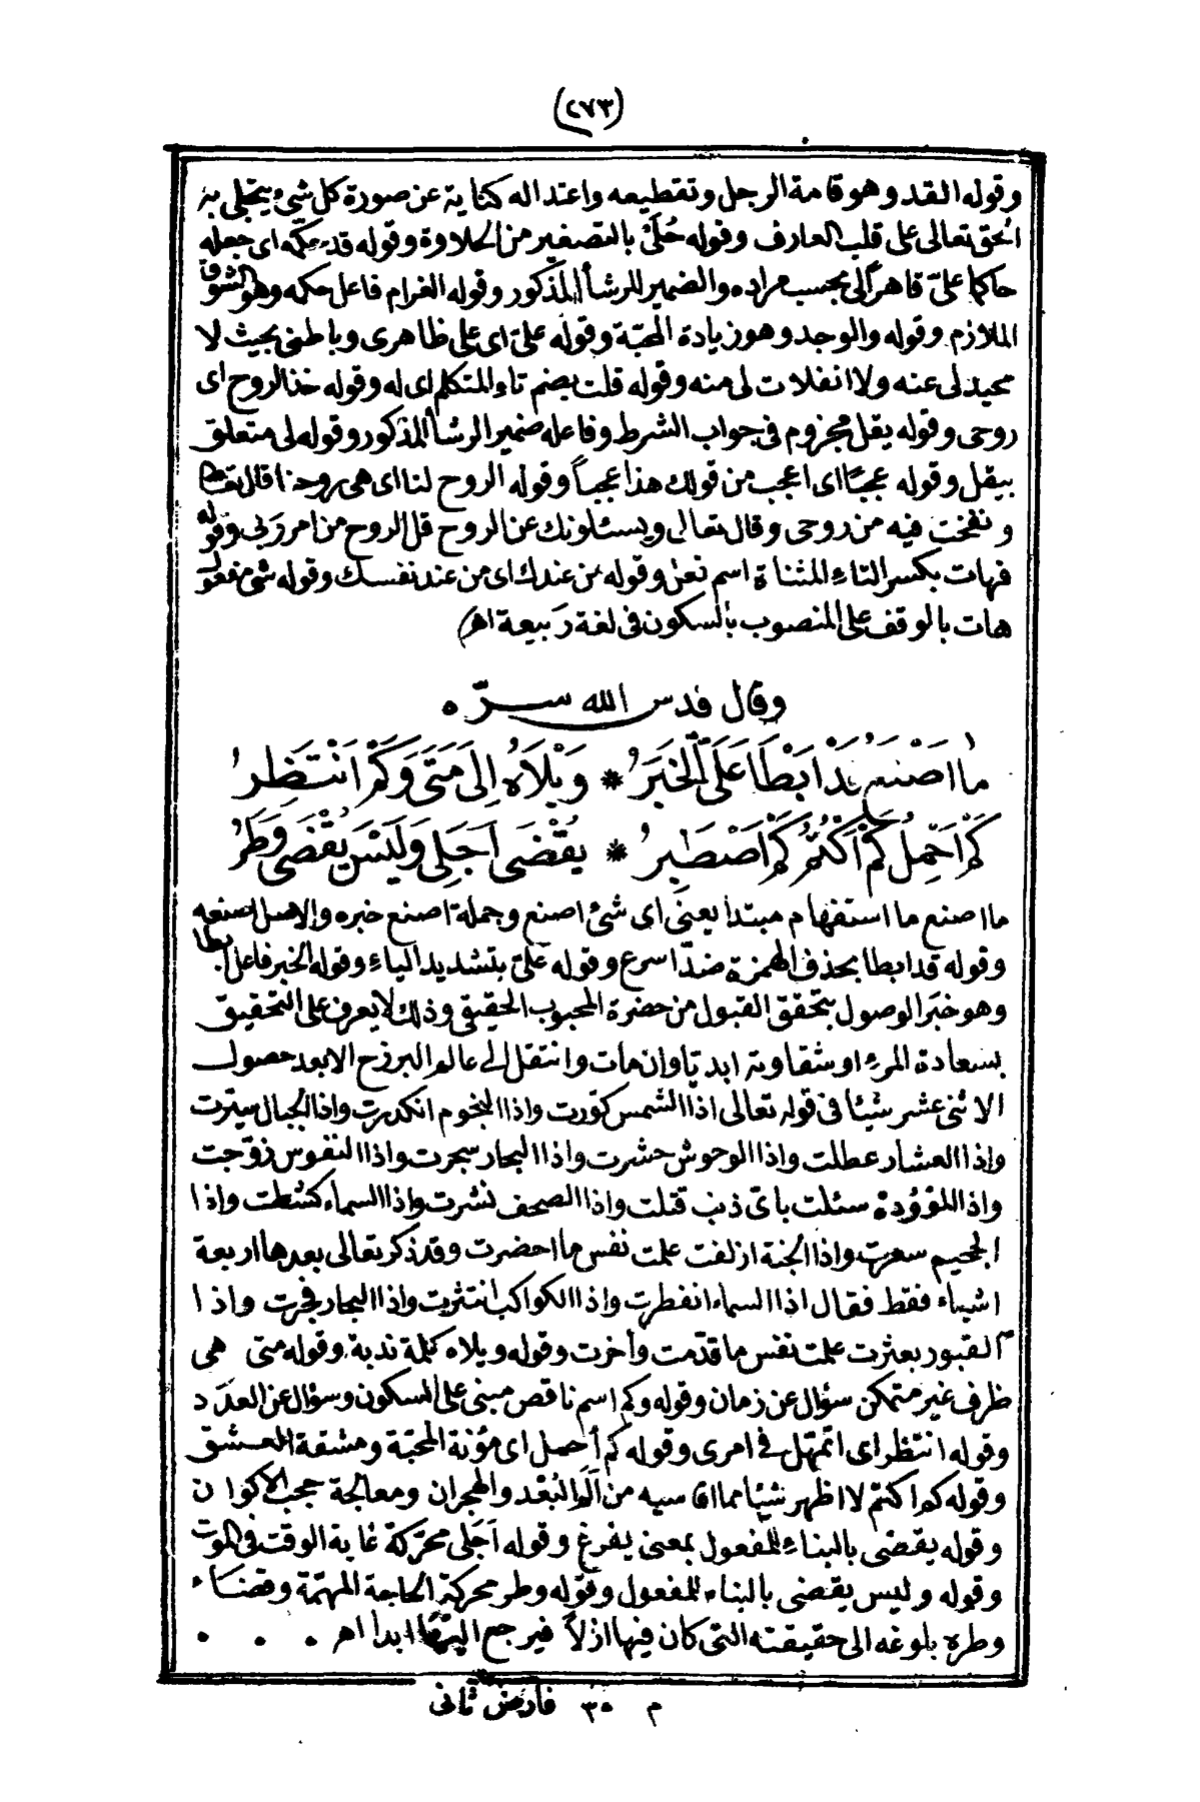 (٢٧٣)
وقوله القد وهو قامة الرجل وتقطيعه واعتداله كناية عن صورة كل شئ يتجلى به
الحق تعالى على قلب العارف وقوله حُلَىّ بالتصغير من الحلاوة وقوله قد حكمه اى جعله
حاكما علىّ قاهراً لى بحسب مراده والضمير للرشأ المذكور وقوله الغرام فاعل حكمه وهو الشوق
الملازم وقوله والوجد وهو زيادة المحبة وقوله علىّ اى على ظاهرى وباطنى بحيث لا
محيد لى عنه ولا انفلات لى منه وقوله قلت بضم تاء المتكلم اى له وقوله خذ الروح اى
روحى وقوله يقل مجزوم فى جواب الشرط وفاعله ضمير الرشأ المذكور وقوله لى متعلق
بيقل وقوله عجبًا اى اعجب من قولك هذا عجباً وقوله الروح لنا اى هى روحنا قال تعالى
ونفخت فيه من روحى وقال تعالى ويسئلونك عن الروح قل الروح من امر ربى وقوله
فهات بكسر التاء المثناة اسم فعل وقوله من عندك اى من عند نفسك وقوله شى مفعول
هات بالوقف على المنصوب بالسكون فى لغة رَبيعة اهـ)
وقال قدس الله سرّه
مَا اَصْنَعُ قَدْ اَبْطَا عَلَىَّ الْخَبَرُ * وَيْلَاهُ اِلَى مَتَى وَكَمْ اَنْتَظِرُ
كَمْ اَحْمِلُ كَمْ اَكْتُمُ كَمْ اَصْطَبِرُ * يُقْضَى اَجَلِى وَلَيْسَ يُقْضَى وَطَرُ
ما اصنع ما استفهام مبتدا يعنى اى شئ اصنع وجملة اصنع خبره والاصل اصنعه
وقوله قد ابطا بحذف الهمزة ضدّ اسرع وقوله علىّ بتشديد الياء وقوله الخبر فاعل ابطا
وهو خبر الوصول بتحقق القبول من حضرة المحبوب الحقيقى وذلك لا يعرف على التحقيق
بسعادة المرء او شقاوته ابديّا وان مات وانتقل الى عالم البرزخ الا بعد حصول
الاثنى عشر شيئا فى قوله تعالى اذا الشمس كوّرت واذا النجوم انكدرت واذا الجبال سيّرت
واذا العشار عطلت واذا الوحوش حشرت واذا البحار سجرت واذا النفوس زوّجت
واذا الموؤدة سئلت باىّ ذنب قتلت واذا الصحف نشرت واذا السماء كشطت واذا
الجحيم سعرت واذا الجنة ازلفت علمت نفس ما احضرت وقد ذكر تعالى بعدها اربعة
اشياء فقط فقال اذا السماء انفطرت واذا الكواكب انتثرت واذا البحار فجرت واذا
القبور بعثرت علمت نفس ما قدّمت وأخرت وقوله ويلاه كلمة ندبة وقوله متى هى
ظرف غير متمكن سؤال عن زمان وقوله وكم اسم ناقص مبنى على السكون وسؤال عن العدد
وقوله انتظر اى اتمهّل فى امرى وقوله كم أحمل اى مؤنة المحبّة ومشقة العشق
وقوله كم اكتم لا اظهر شيئا مما اقاسيه من ألم البُعْد والهجران ومعالجة حجب الاكوان
وقوله يقضى بالبناء للمفعول بمعنى يفرغ وقوله اَجَلى محرّكة غاية الوقت فى الموت
وقوله وليس يقضى بالبناء للمفعول وقوله وطر محركة الحاجة المهمّة وقضاء
وطره بلوغه الى حقيقته التى كان فيها ازلاً فيرجع اليها ابدا اهـ . . .
م ٣٥ فارض ثانى